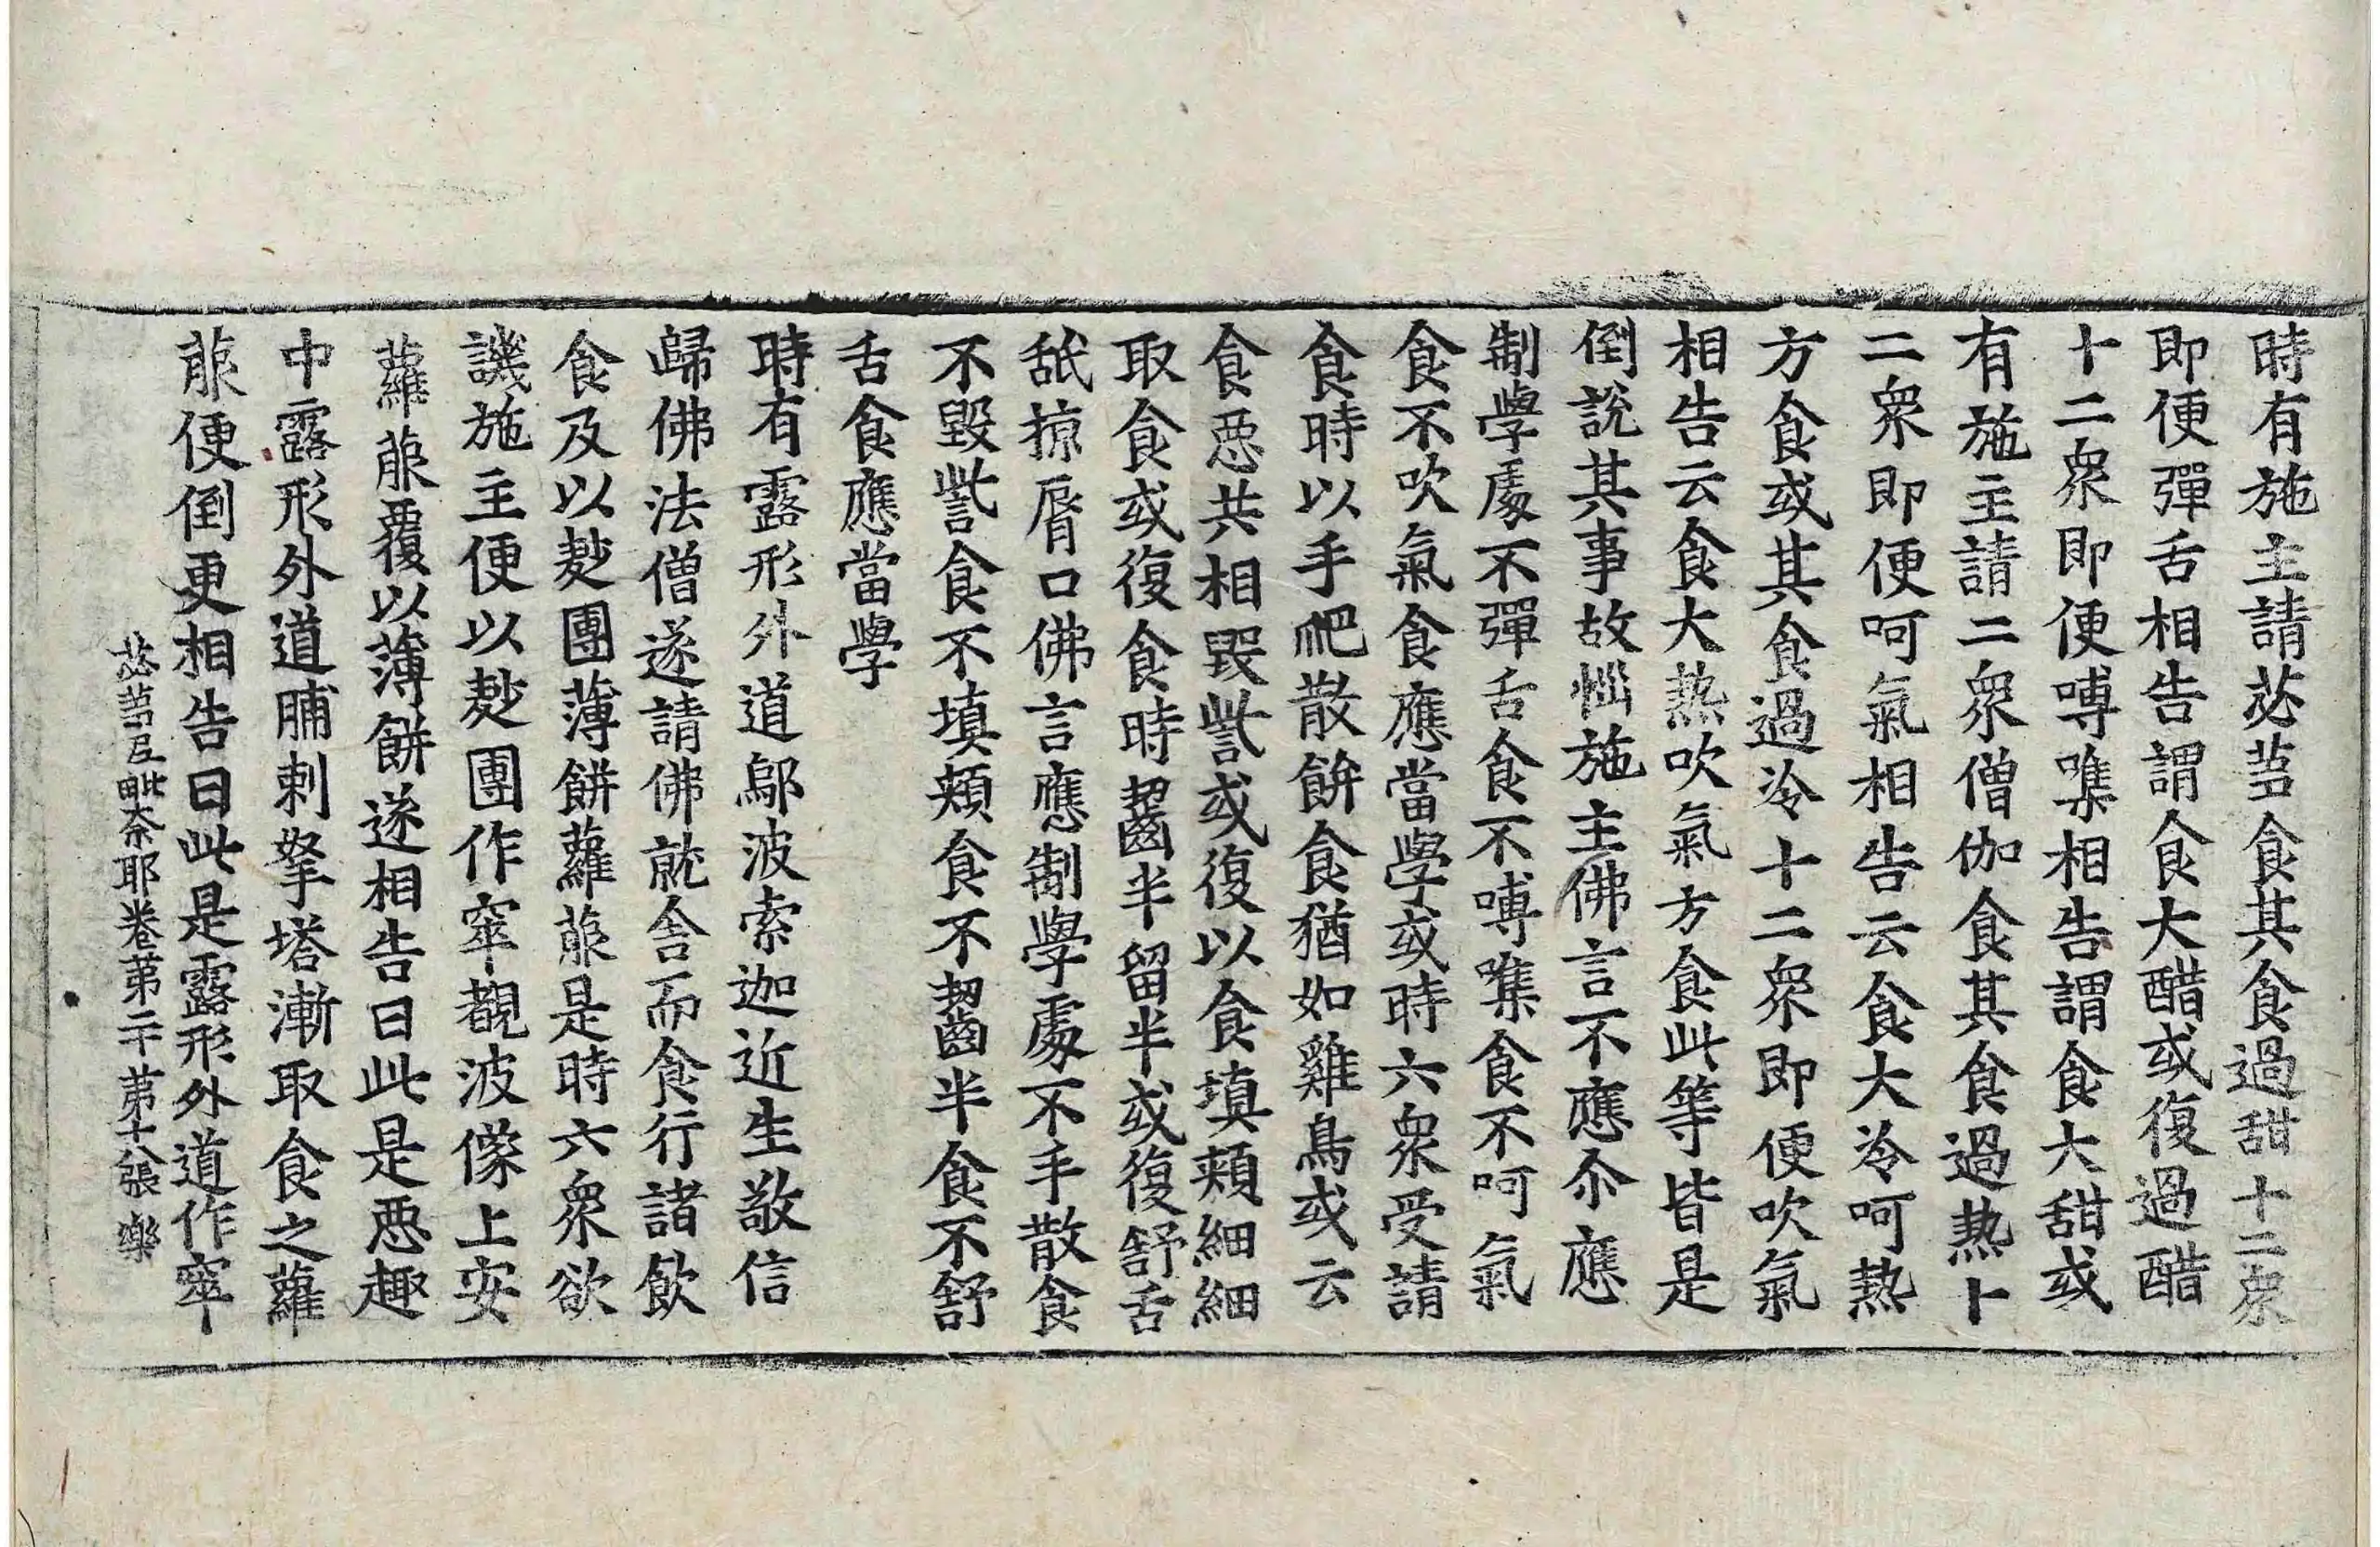 時有施主請苾芻食其食過甜十二衆
即便彈舌相告謂食大醋或復過醋
十二衆即便嚩㗱相告謂食大甜或
有施主請二衆僧伽食其食過熱十
二衆即便呵氣相告云食大冷呵熱
方食或其食過冷十二衆即便吹氣
相告云食大熱吹氣方食此等皆是
倒說其事故惱施主佛言不應尒應
制學處不彈舌食不嚩㗱食不呵氣
食不吹氣食應當學或時六衆受請
食時以手爬散餅食猶如雞鳥或云
食惡共相毀訾或復以食填頰細細
取食或復食時齧半留半或復舒舌
舐掠脣口佛言應制學處不手散食
不毀訾食不填頰食不齧半食不舒
舌食應當學
時有露形外道鄔波索迦近生敬信
歸佛法僧遂請佛就舍而食行諸飲
食及以麨團薄餅蘿菔是時六衆欲
譏施主便以麨團作窣覩波像上安
蘿菔覆以薄餅遂相告曰此是惡趣
中露形外道脯剌拏塔漸取食之蘿
菔便倒更相告曰此是露形外道作窣
苾芻尼毗奈耶卷第二十 第十八張 樂